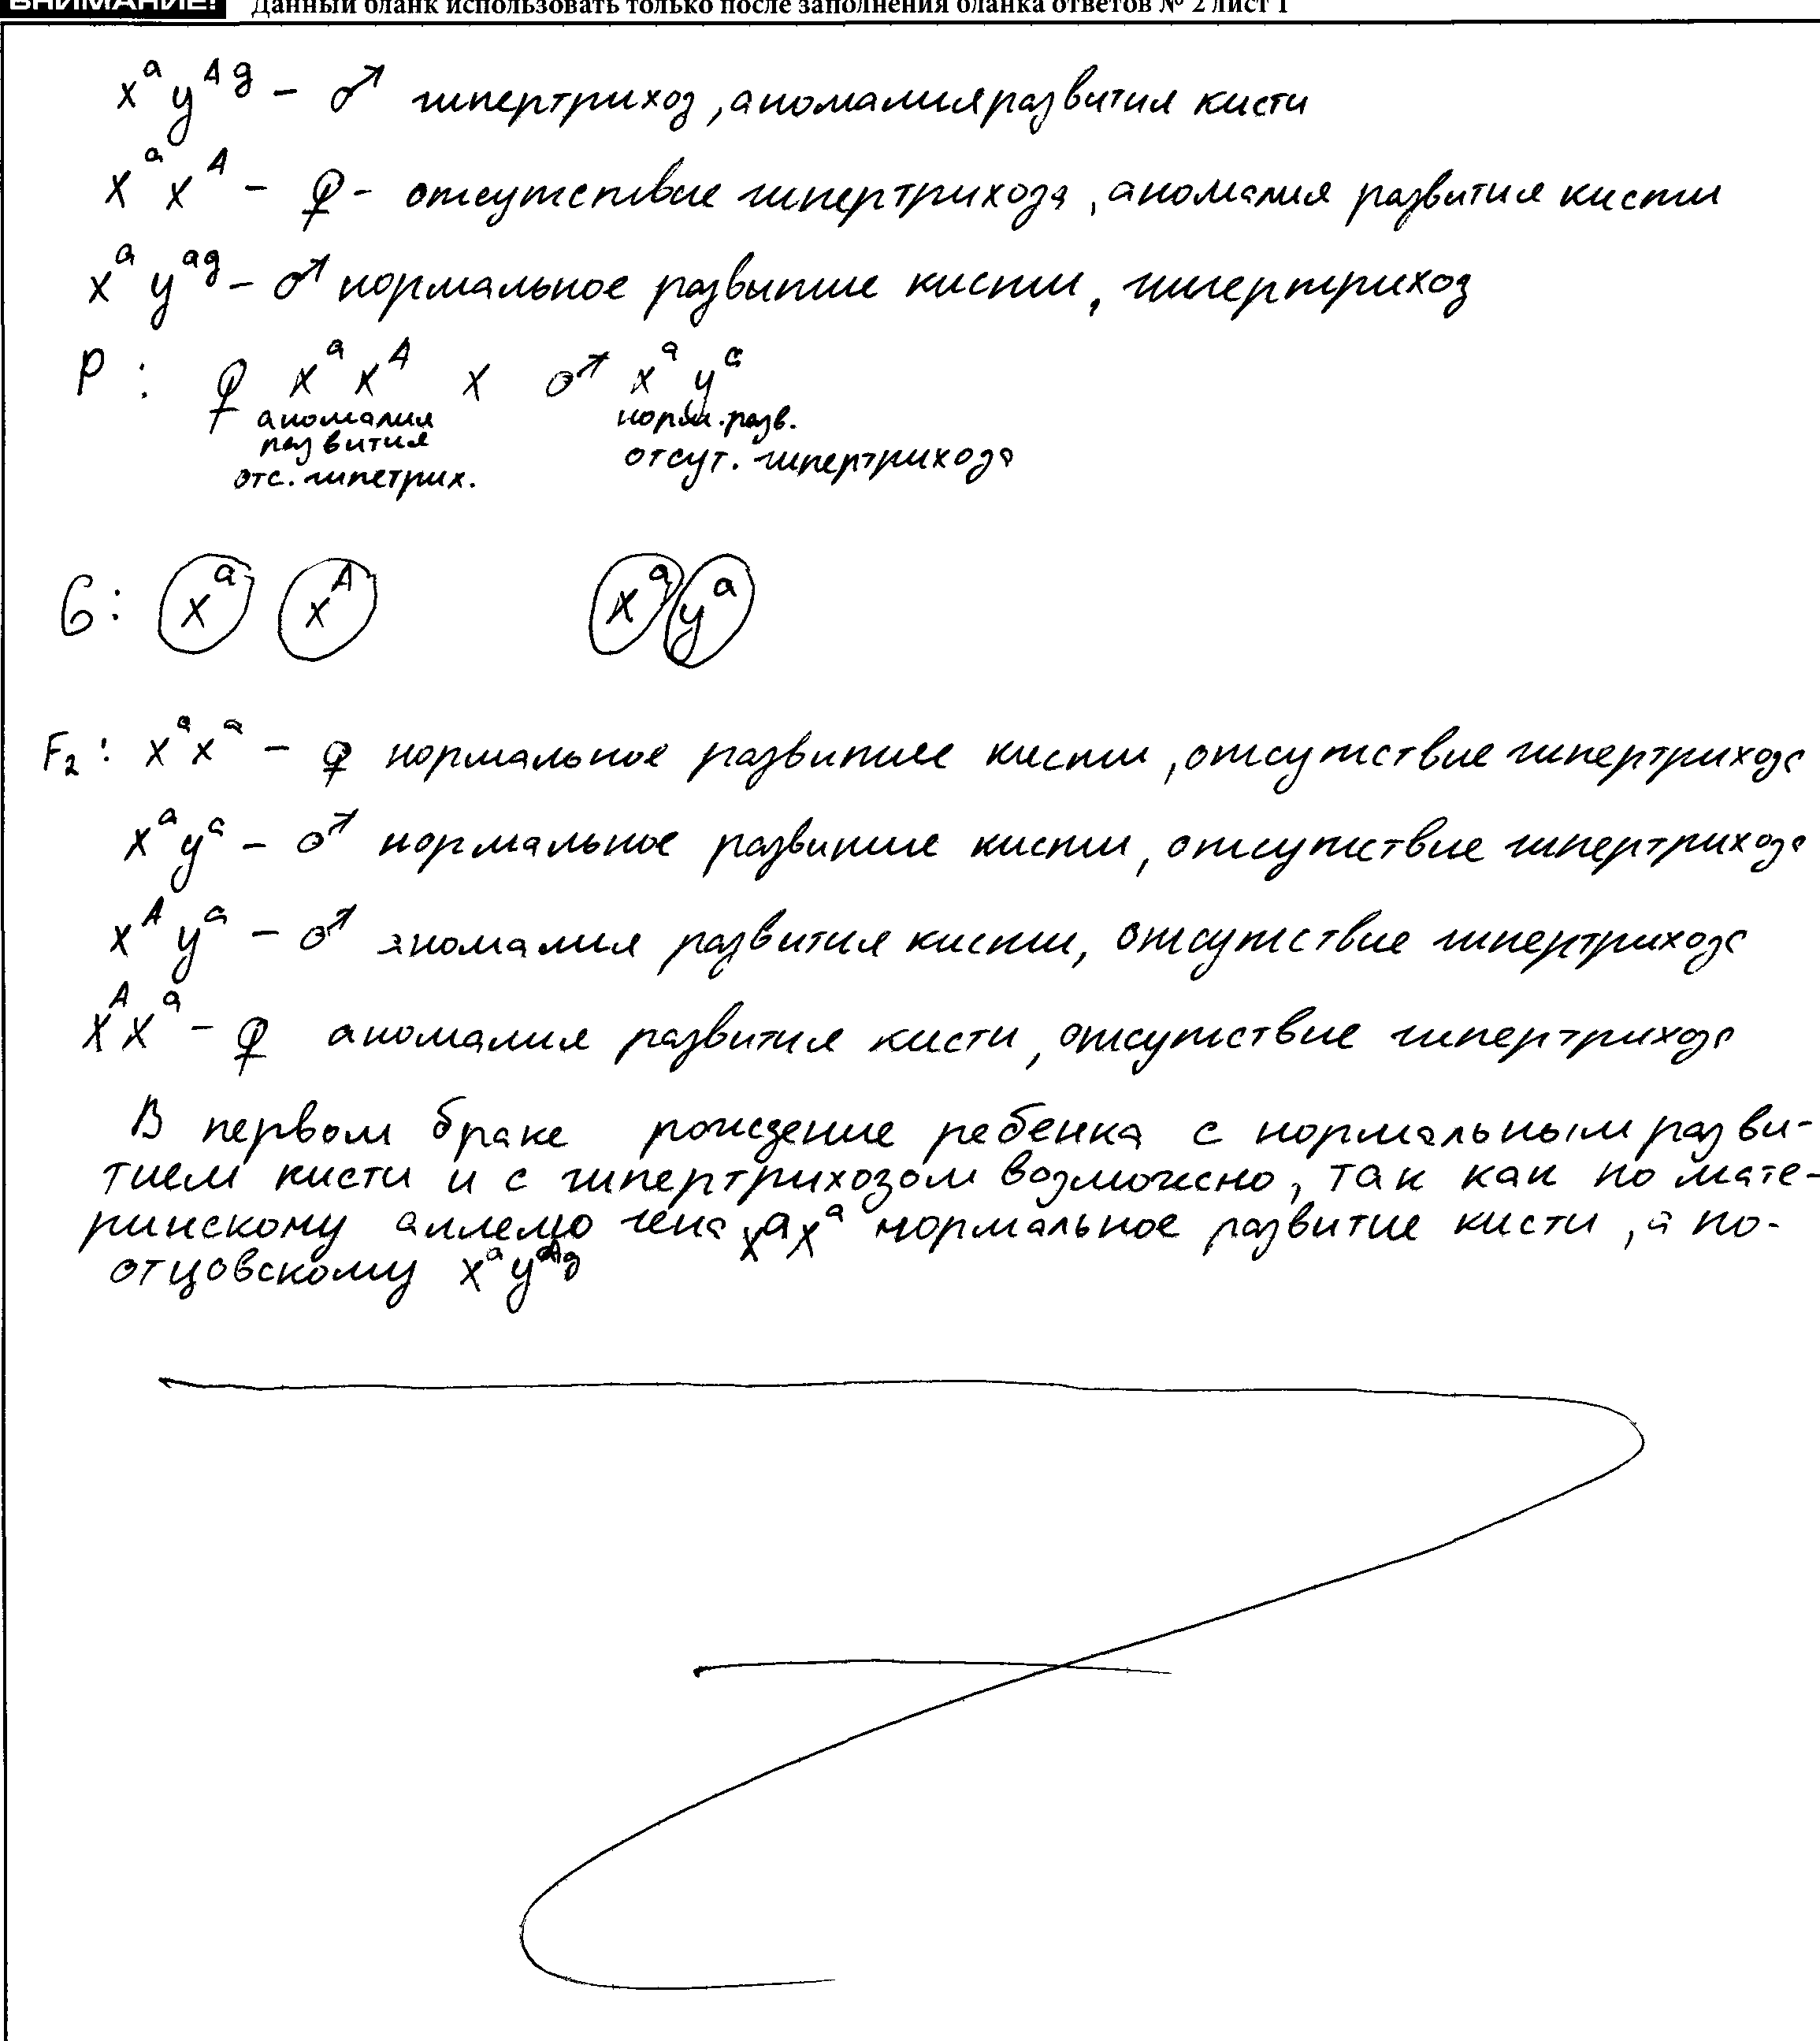 ВНИМАНИЕ! Данный бланк использовать только после заполнения бланка ответов № 2 лист 1
xᵃ yᴬᵍ – ♂ гипертрихоз, аномалия развития кисти
xᵃ xᴬ – ♀ - отсутствие гипертрихоза, аномалия развития кисти
xᵃ yᵃᵍ – ♂ нормальное развитие кисти, гипертрихоз
P : ♀ xᵃ xᴬ x ♂ xᵃ yᵃ
аномалия норм. разв.
развития отсут. гипертрихоза
отс. гипетрих.
G: xᵃ xᴬ xᵃ yᵃ
F₂: xᵃ xᵃ – ♀ нормальное развитие кисти, отсутствие гипертрихоза
xᵃ yᵃ – ♂ нормальное развитие кисти, отсутствие гипертрихоза
xᴬ yᵃ – ♂ аномалия развития кисти, отсутствие гипертрихоза
xᴬ xᵃ – ♀ аномалия развития кисти, отсутствие гипертрихоза
В первом браке рождение ребенка с нормальным разви-
тием кисти и с гипертрихозом возможно, так как по мате-
ринскому аллелю гена xᵃxᵃ нормальное развитие кисти, а по-
отцовскому xᵃ